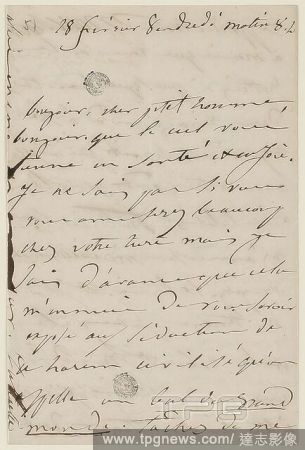 18 février Vendredi matin 8 h
bonjour, cher ptit homme,
bonjour, que le ciel vous
tienne en santé et en joie.
Je ne sais pas si vous
vous amuserez beaucoup
chez votre turc mais je
sais d'avance que cela
m'ennuie de vous savoir
exposé aux séductions de
ce harem civilisé qu'on
appelle un bal du grand
monde. Tâchez de me
www.tpgnews.com / 達志影像